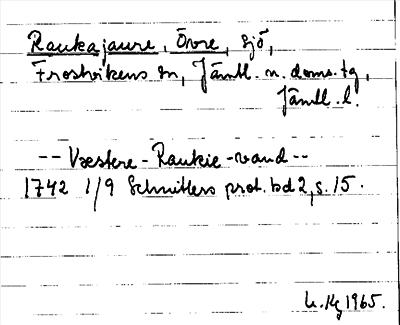 Raukajaure, Övre, sjö,
Frostvikens sn, Jämtl. n. doms. tg,
Jämtl. l.
-- Væstere - Raukie - vand --
1742 1/9 Schnitlers prot. bd 2, s. 15.
1965.